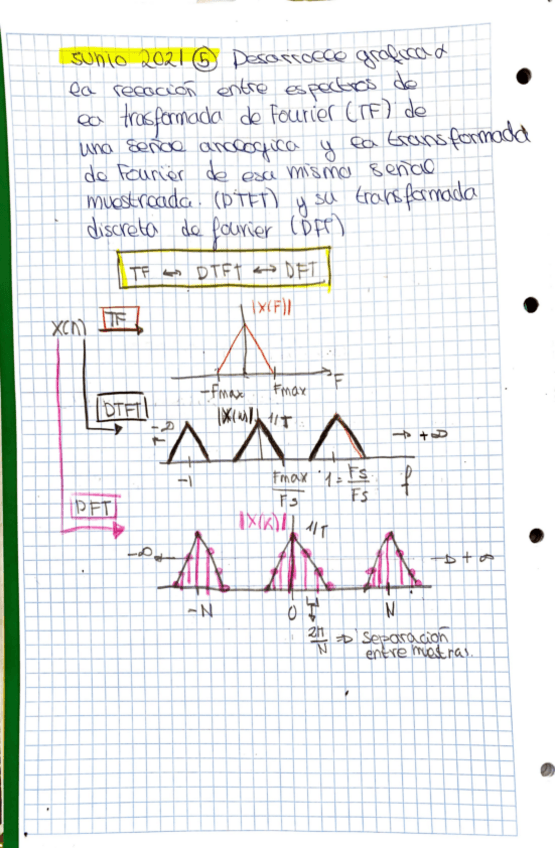 Junio 2021 ⑤ Desarrolle grafica
la relación entre espectros de
la trasformada de Fourier (TF) de
una señal analogica y la transformada
de Fourier de esa misma señal
muestreada. (DTFT) y su transformada
discreta de fourier (DFT)
TF ↔ DTFT ↔ DFT
|X(F)|
X(n) TF
-Fmax Fmax F
DTFT -∞ |X(ω)| 1/T → +∞
-1 Fmax/Fs 1 = Fs/Fs f
DFT |X(K)| 1/T
-∞ → +∞
-N 0 N
2π/N ⇒ separación
entre mostras.